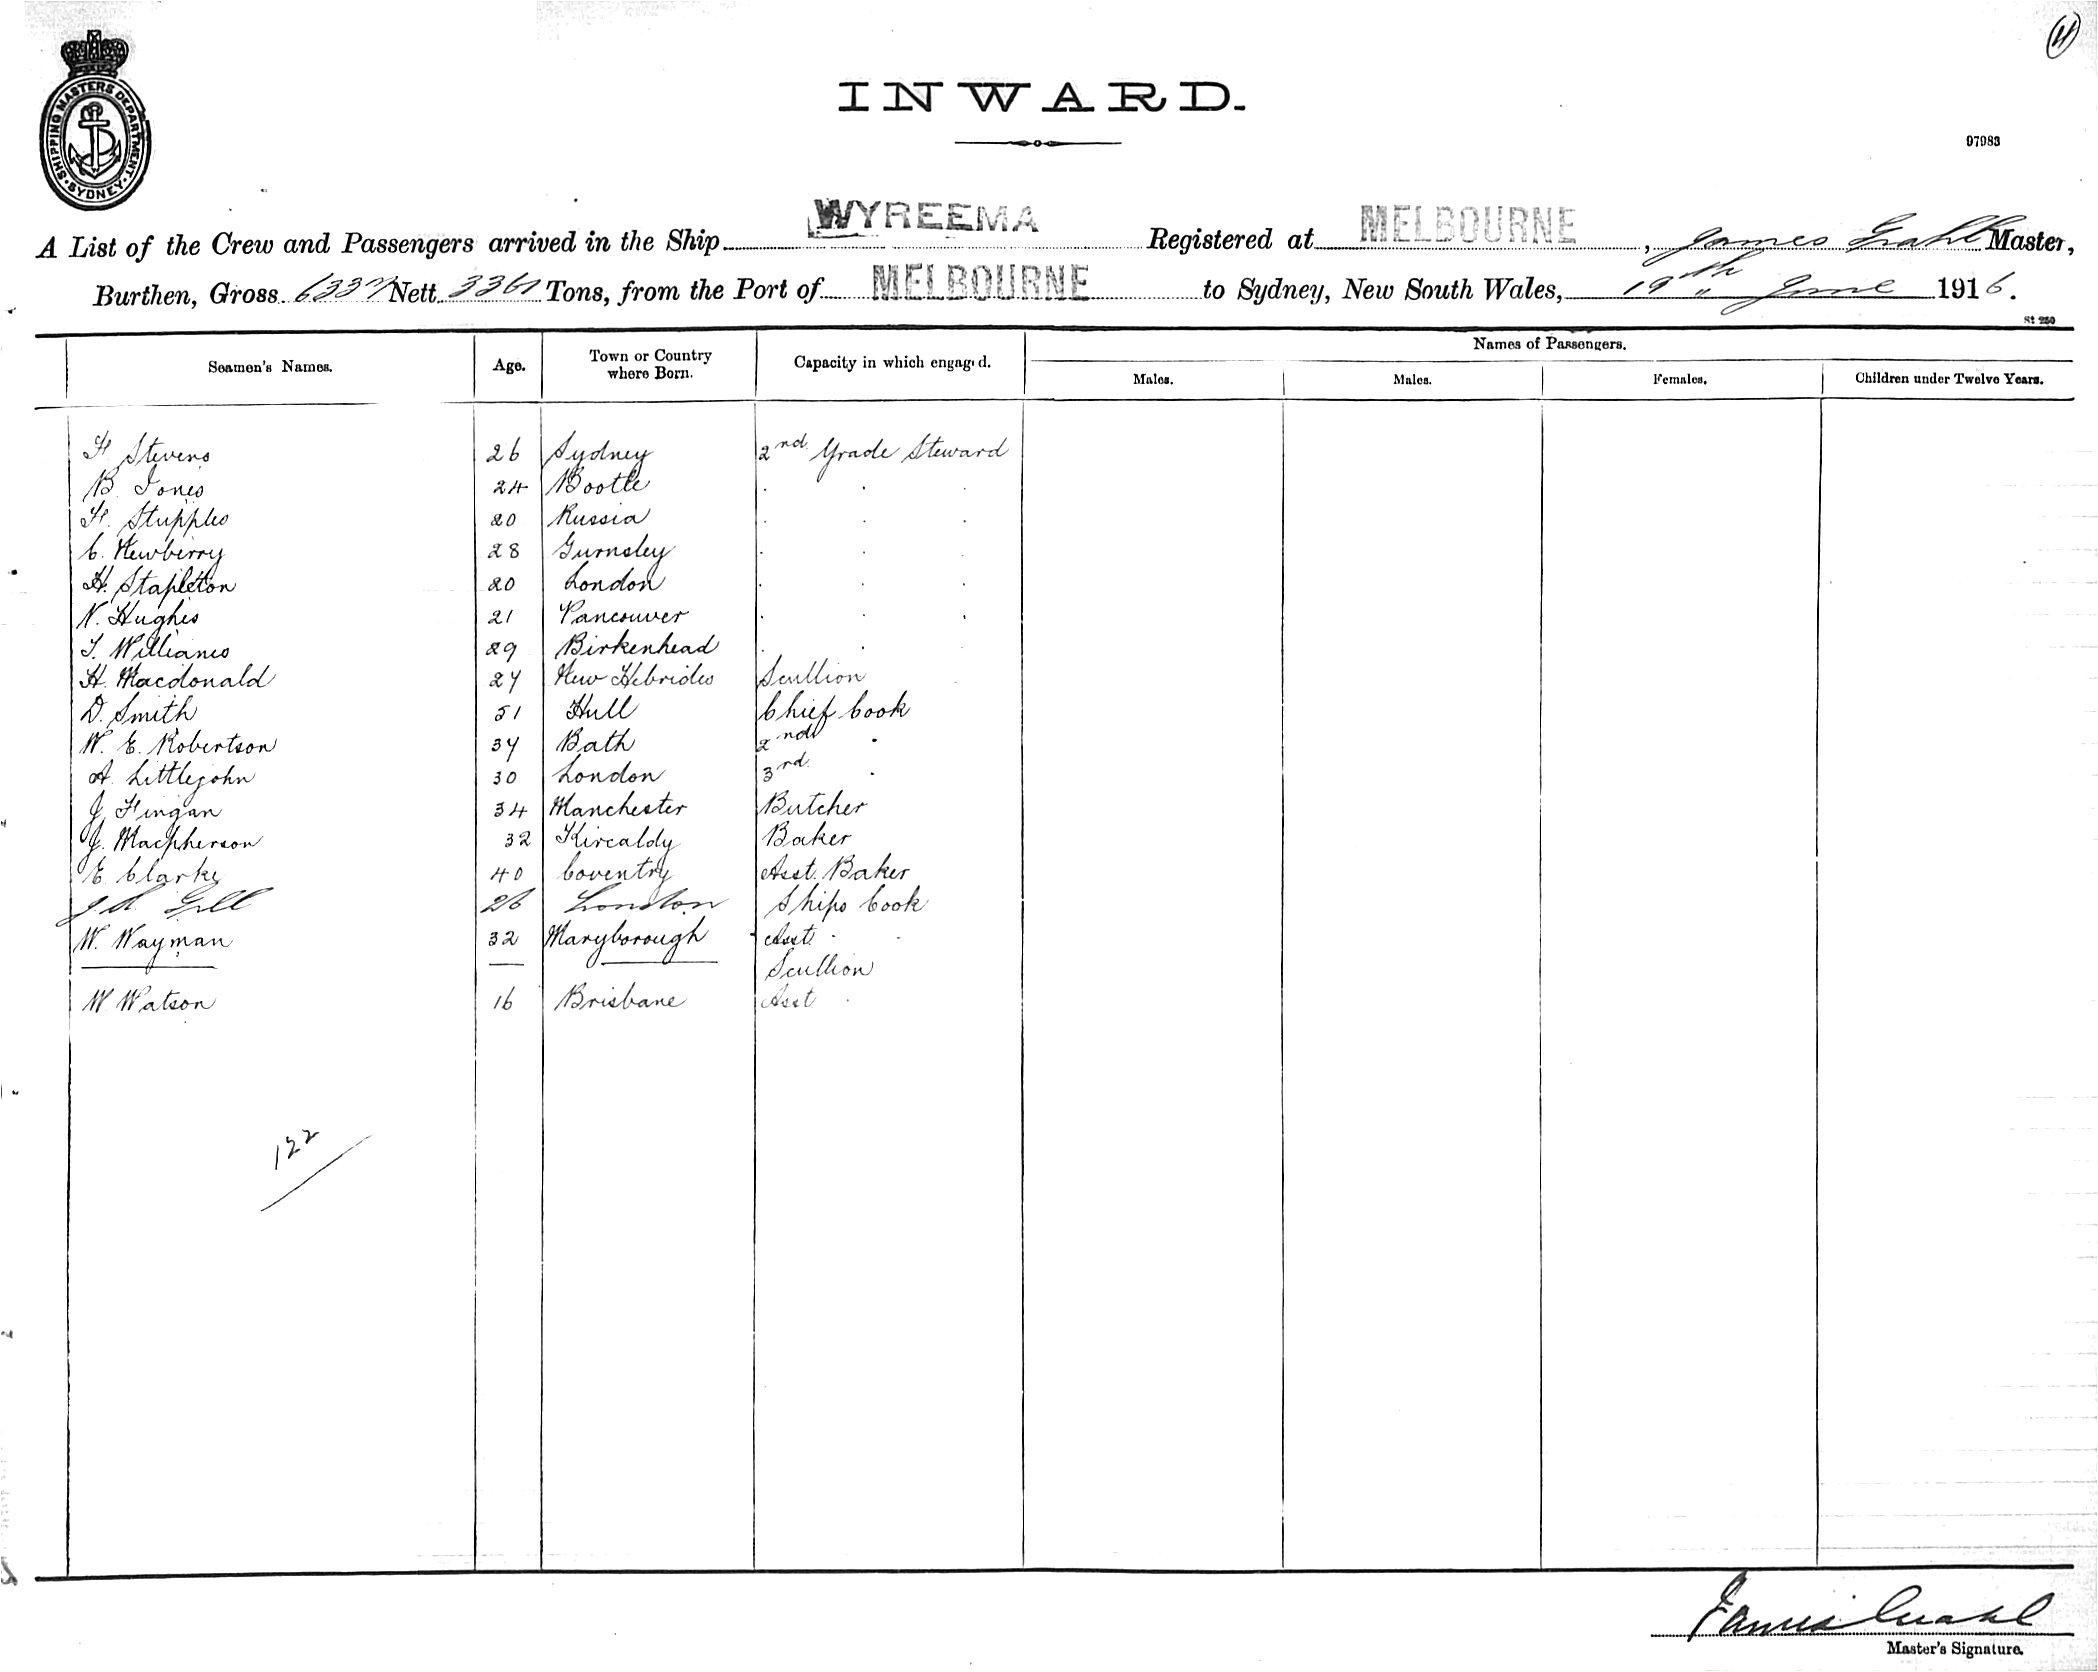 SHIPPING MASTERS DEPARTMENT SYDNEY
INWARD.
97983
A List of the Crew and Passengers arrived in the Ship WYREEMA Registered at MELBOURNE, James Grahl Master,
Burthen, Gross 6337 Nett 3361 Tons, from the Port of MELBOURNE to Sydney, New South Wales, 19th June 1916.
St 250
Seamen's Names. Age. Town or Country where Born. Capacity in which engaged. Names of Passengers.
Males. Males. Females. Children under Twelve Years.
H Stevens 26 Sydney 2nd Grade Steward
B. Jones 24 Bootle . . .
H. Stupples 20 Russia . . .
C. Newberry 28 Gurnsley . . .
H. Stapleton 20 London . . .
N. Hughes 21 Vancouver . . .
T. Williams 29 Birkenhead . . .
H. Macdonald 27 New Hebrides Scullion
D. Smith 51 Hull Chief Cook
W. E. Robertson 37 Bath 2nd .
A. Littlejohn 30 London 3rd .
J Fingan 34 Manchester Butcher
J. Macpherson 32 Kircaldy Baker
E Clarke 40 Coventry Asst. Baker
Gill 26 London Ships Cook
W. Wayman 32 Maryborough Asst. . .
Scullion
W Watson 16 Brisbane Asst .
122
James Grahl
Master's Signature.